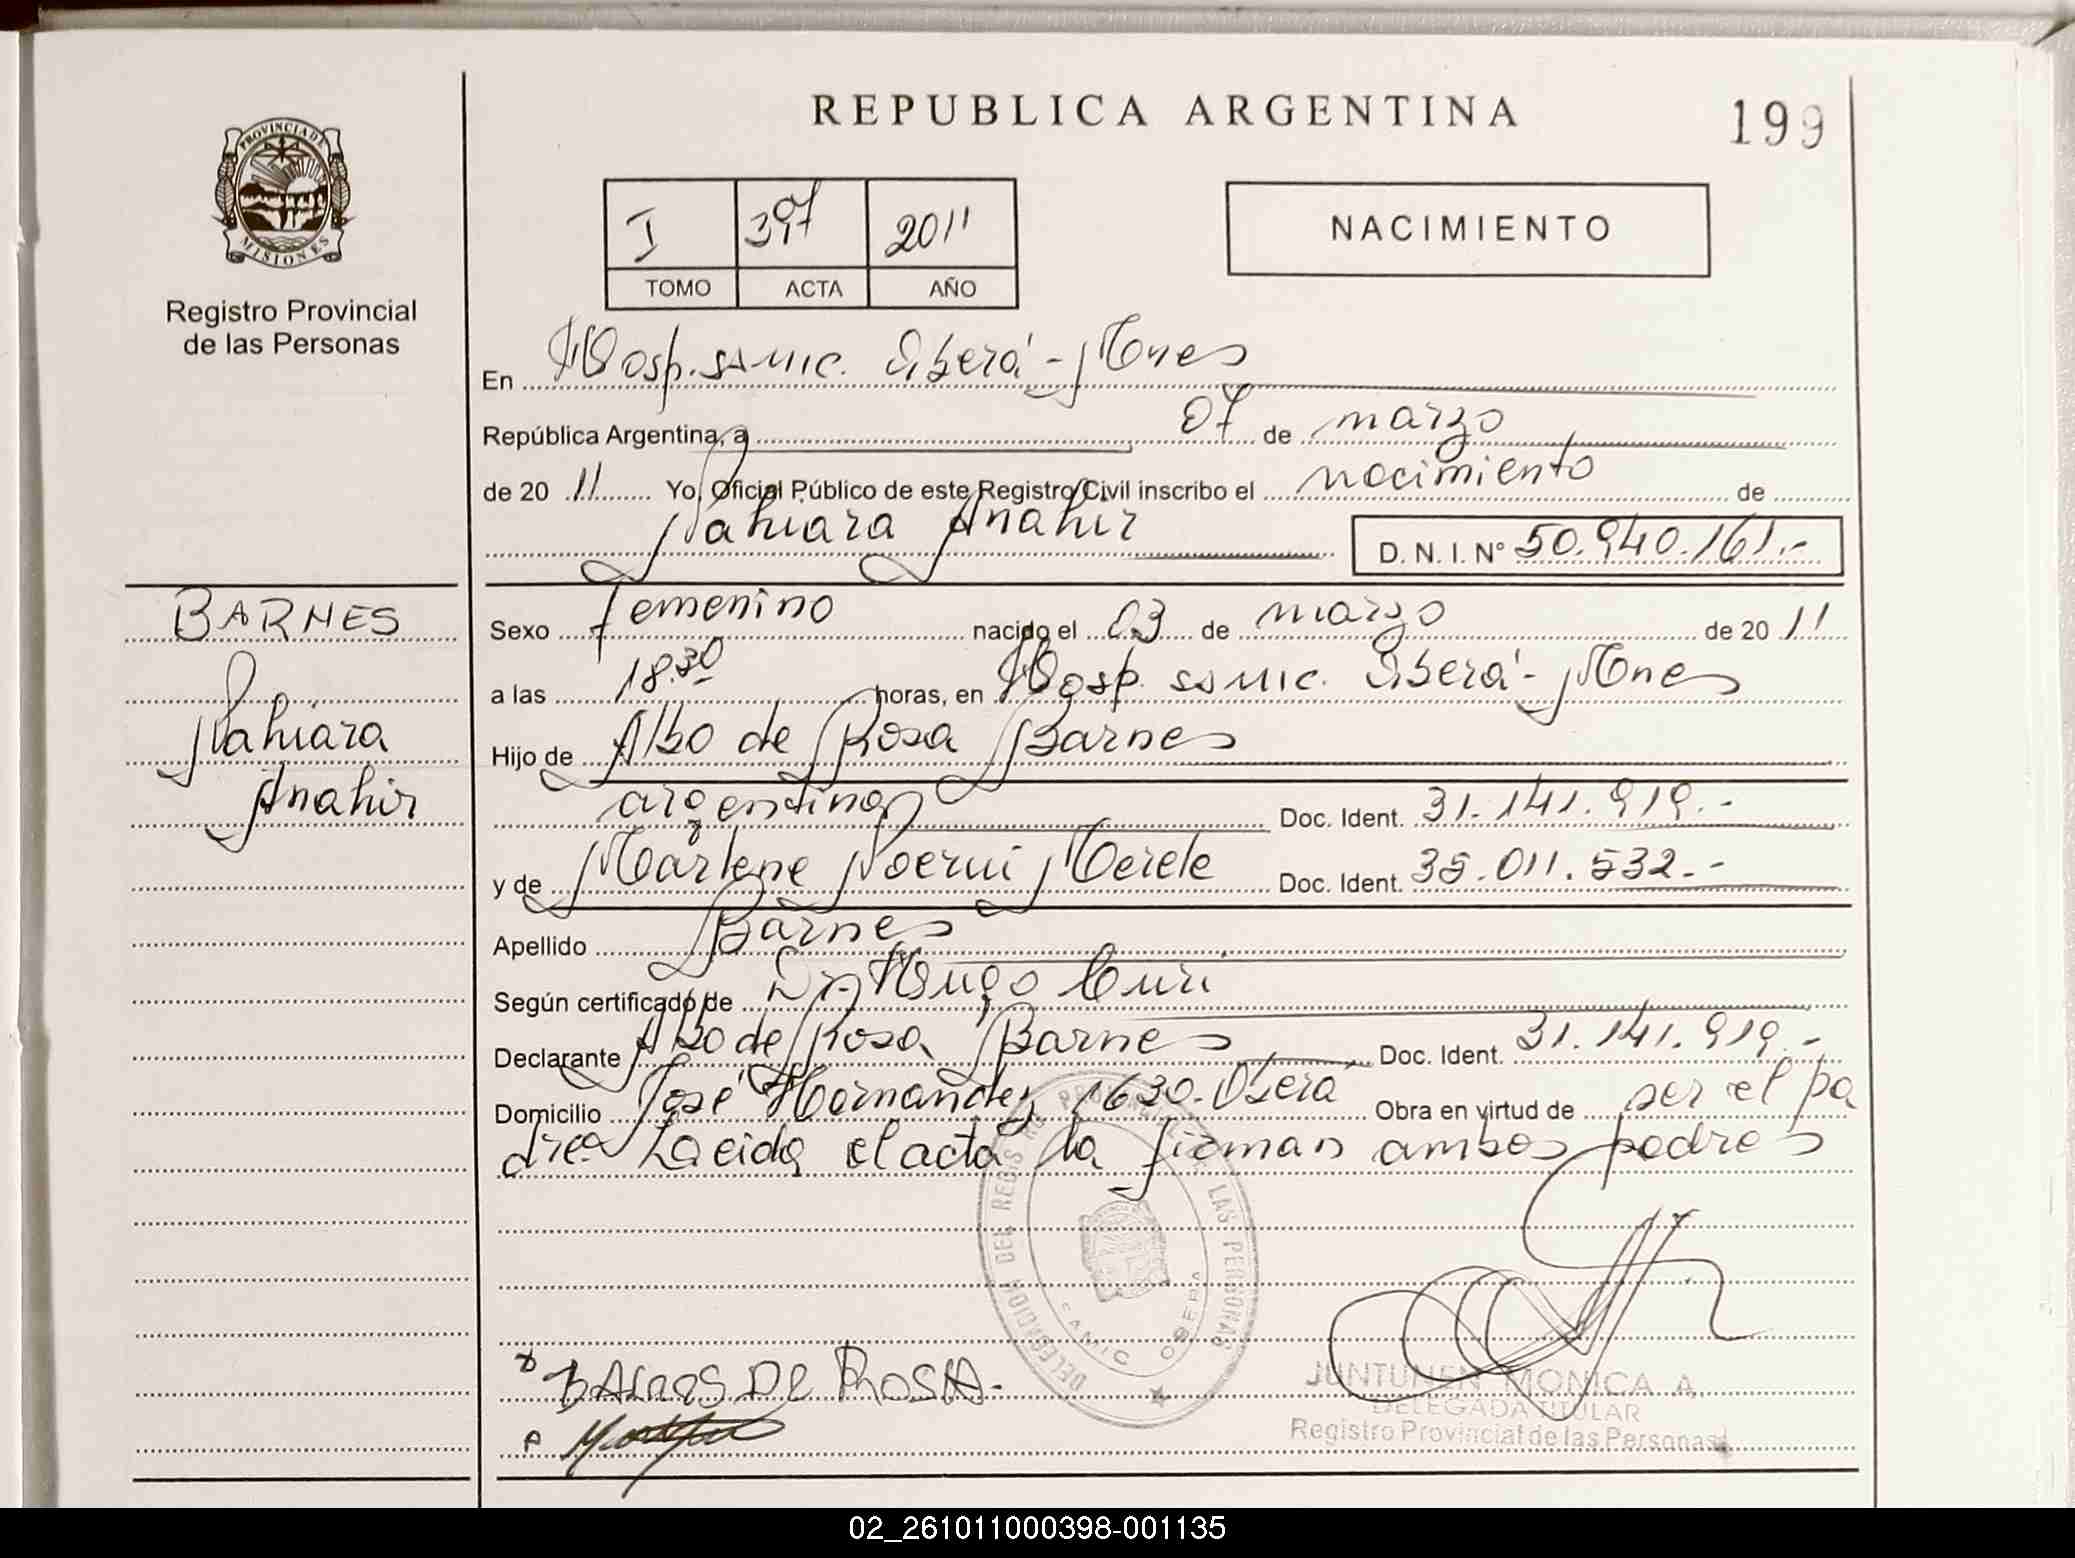 REPUBLICA ARGENTINA
199
PROVINCIA DE
MISIONES
Registro Provincial
de las Personas
I 397 2011
TOMO ACTA AÑO
NACIMIENTO
En Hosp. samic. Oberá - Mnes
República Argentina, a 07 de marzo
de 20 11 Yo, Oficial Público de este Registro Civil inscribo el nacimiento de
Nahiara Anahir
D. N. I. Nº 50.940.161.-
BARNES
Nahiara
Anahir
Sexo femenino nacido el 03 de marzo de 20 11
a las 18.30 horas, en Hosp. samic. Oberá - Mnes
Hijo de Albo de Rosa Barnes
argentino Doc. Ident. 31.141.919.-
y de Marlene Noemi Doc. Ident. 35.011.532.-
Apellido Barnes
Según certificado de Dr Hugo
Declarante Albo de Rosa Barnes Doc. Ident. 31.141.919.-
Domicilio José Hernandez 1630. Oberá Obra en virtud de ser el pa
dre. Leida el acta la firman ambos padres
DELEGACION DEL REGISTRO PROVINCIAL DE LAS PERSONAS
SAMIC OBERA
DE ROSA.
JUNTUNEN MONICA A.
DELEGADA TITULAR
Registro Provincial de las Personas
02_261011000398-001135